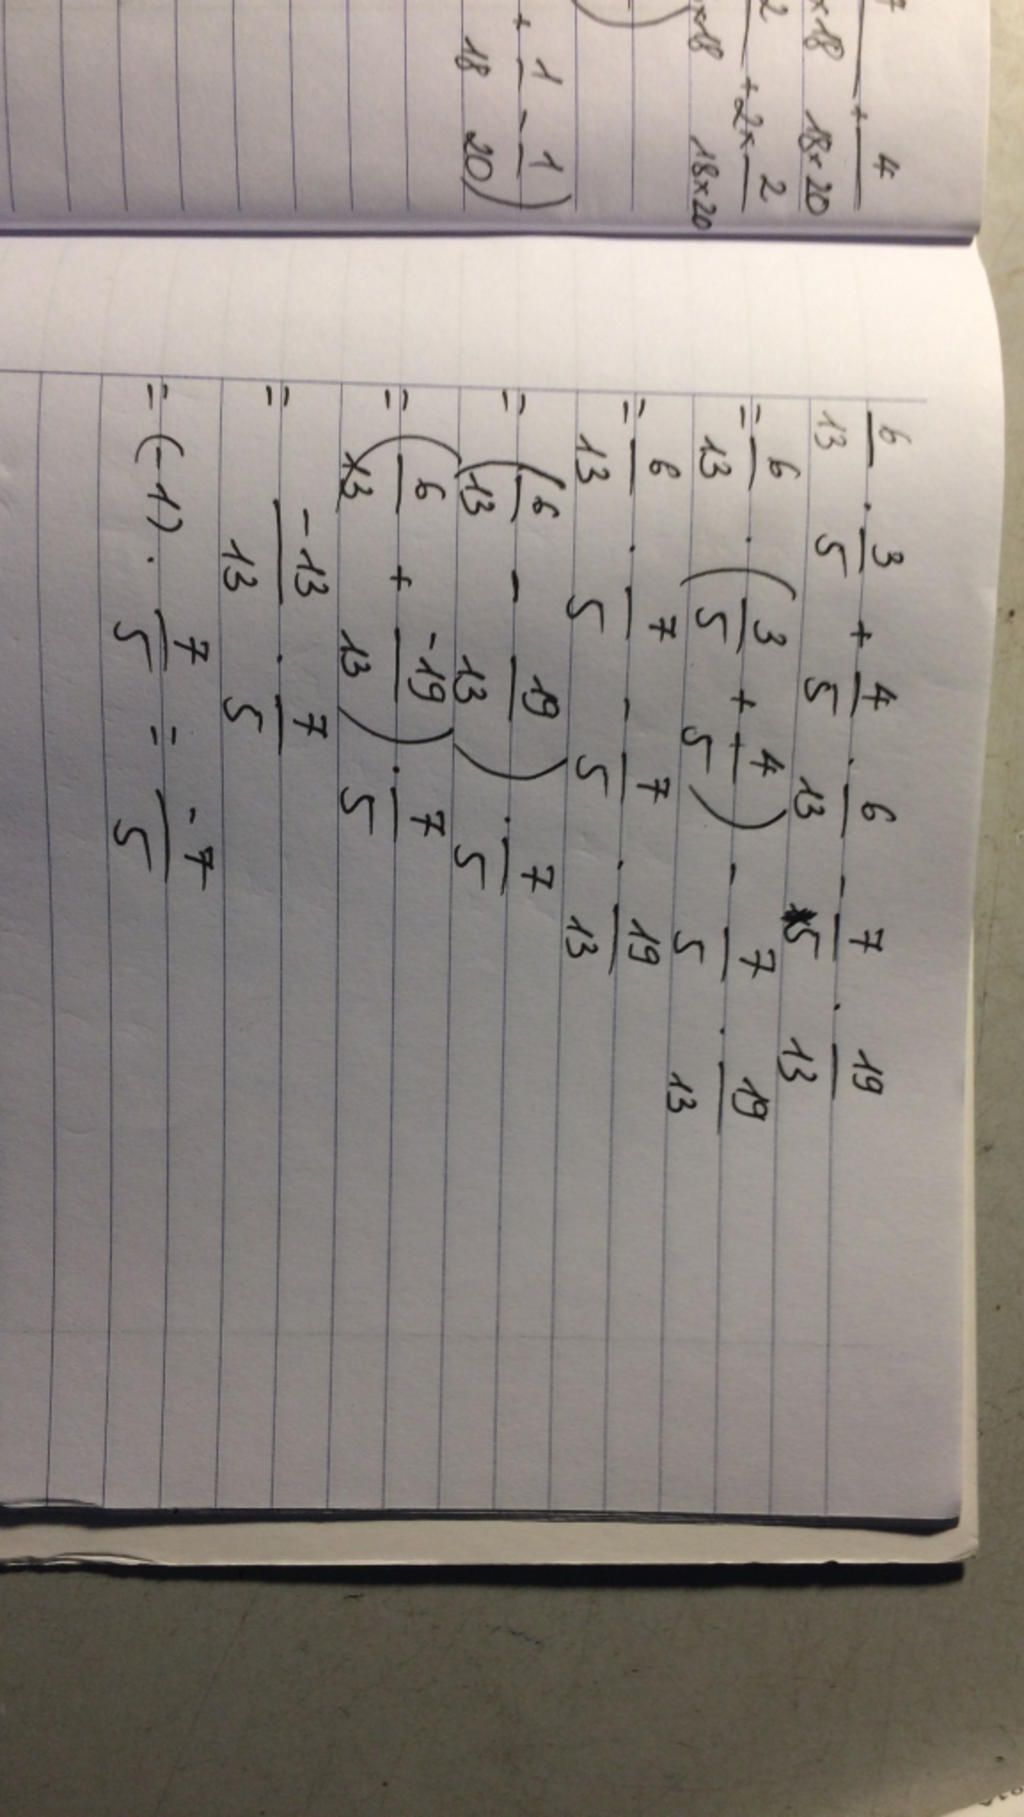 7/×18 + 4/18×20
2/×18 + 2×2/18×20
+ 1/18 - 1/20)
6/13 . 3/5 + 4/5 . 6/13 - 7/5 . 19/13
= 6/13 . (3/5 + 4/5) - 7/5 . 19/13
= 6/13 . 7/5 - 7/5 . 19/13
= (6/13 - 19/13) . 7/5
= (6/13 + -19/13) . 7/5
= -13/13 . 7/5
= (-1) . 7/5 = -7/5